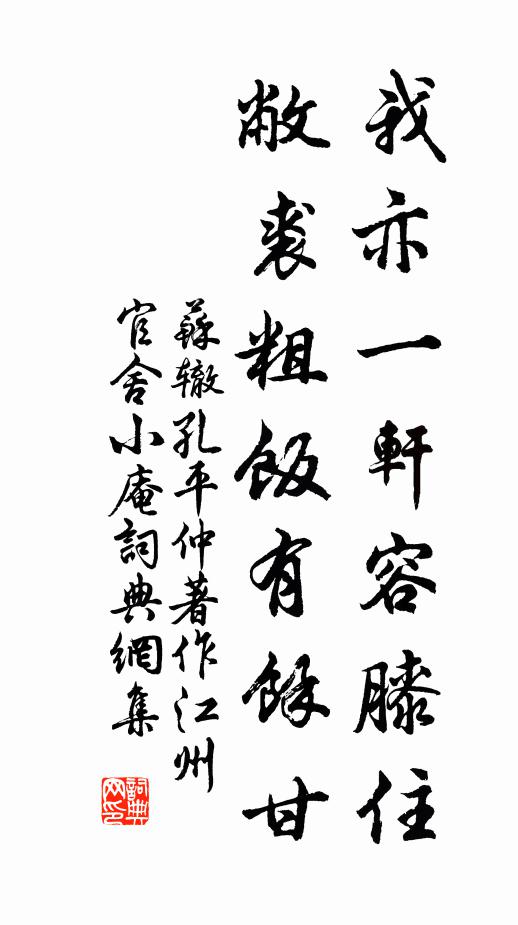 我亦一軒容膝住
敝裘粗飯有餘甘
蘇轍孔平仲著作江州
官舍小庵詞典網集
詞典
网印